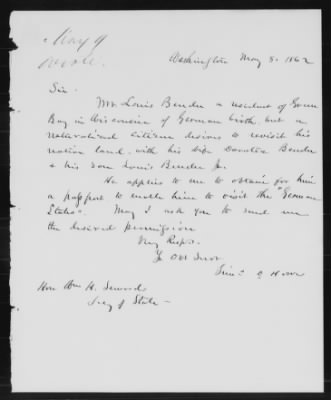 May 9
wrote.
Washington May 8. 1862
Sir.
Mr. Louis Bender a resident of Green
Bay in Wisconsin of German birth, but a
naturalized citizen desires to revisit his
native land, with his wife Dorotea Bender
& his son Louis Bender Jr.
He applies to me to obtain for him
a passport to enable him to visit the "German
States". May I ask you to send me
the desired permission
Very Respy.
Yr Obt Servt
Timo. O Howe
Hon Wm H. Seward
Secy of State